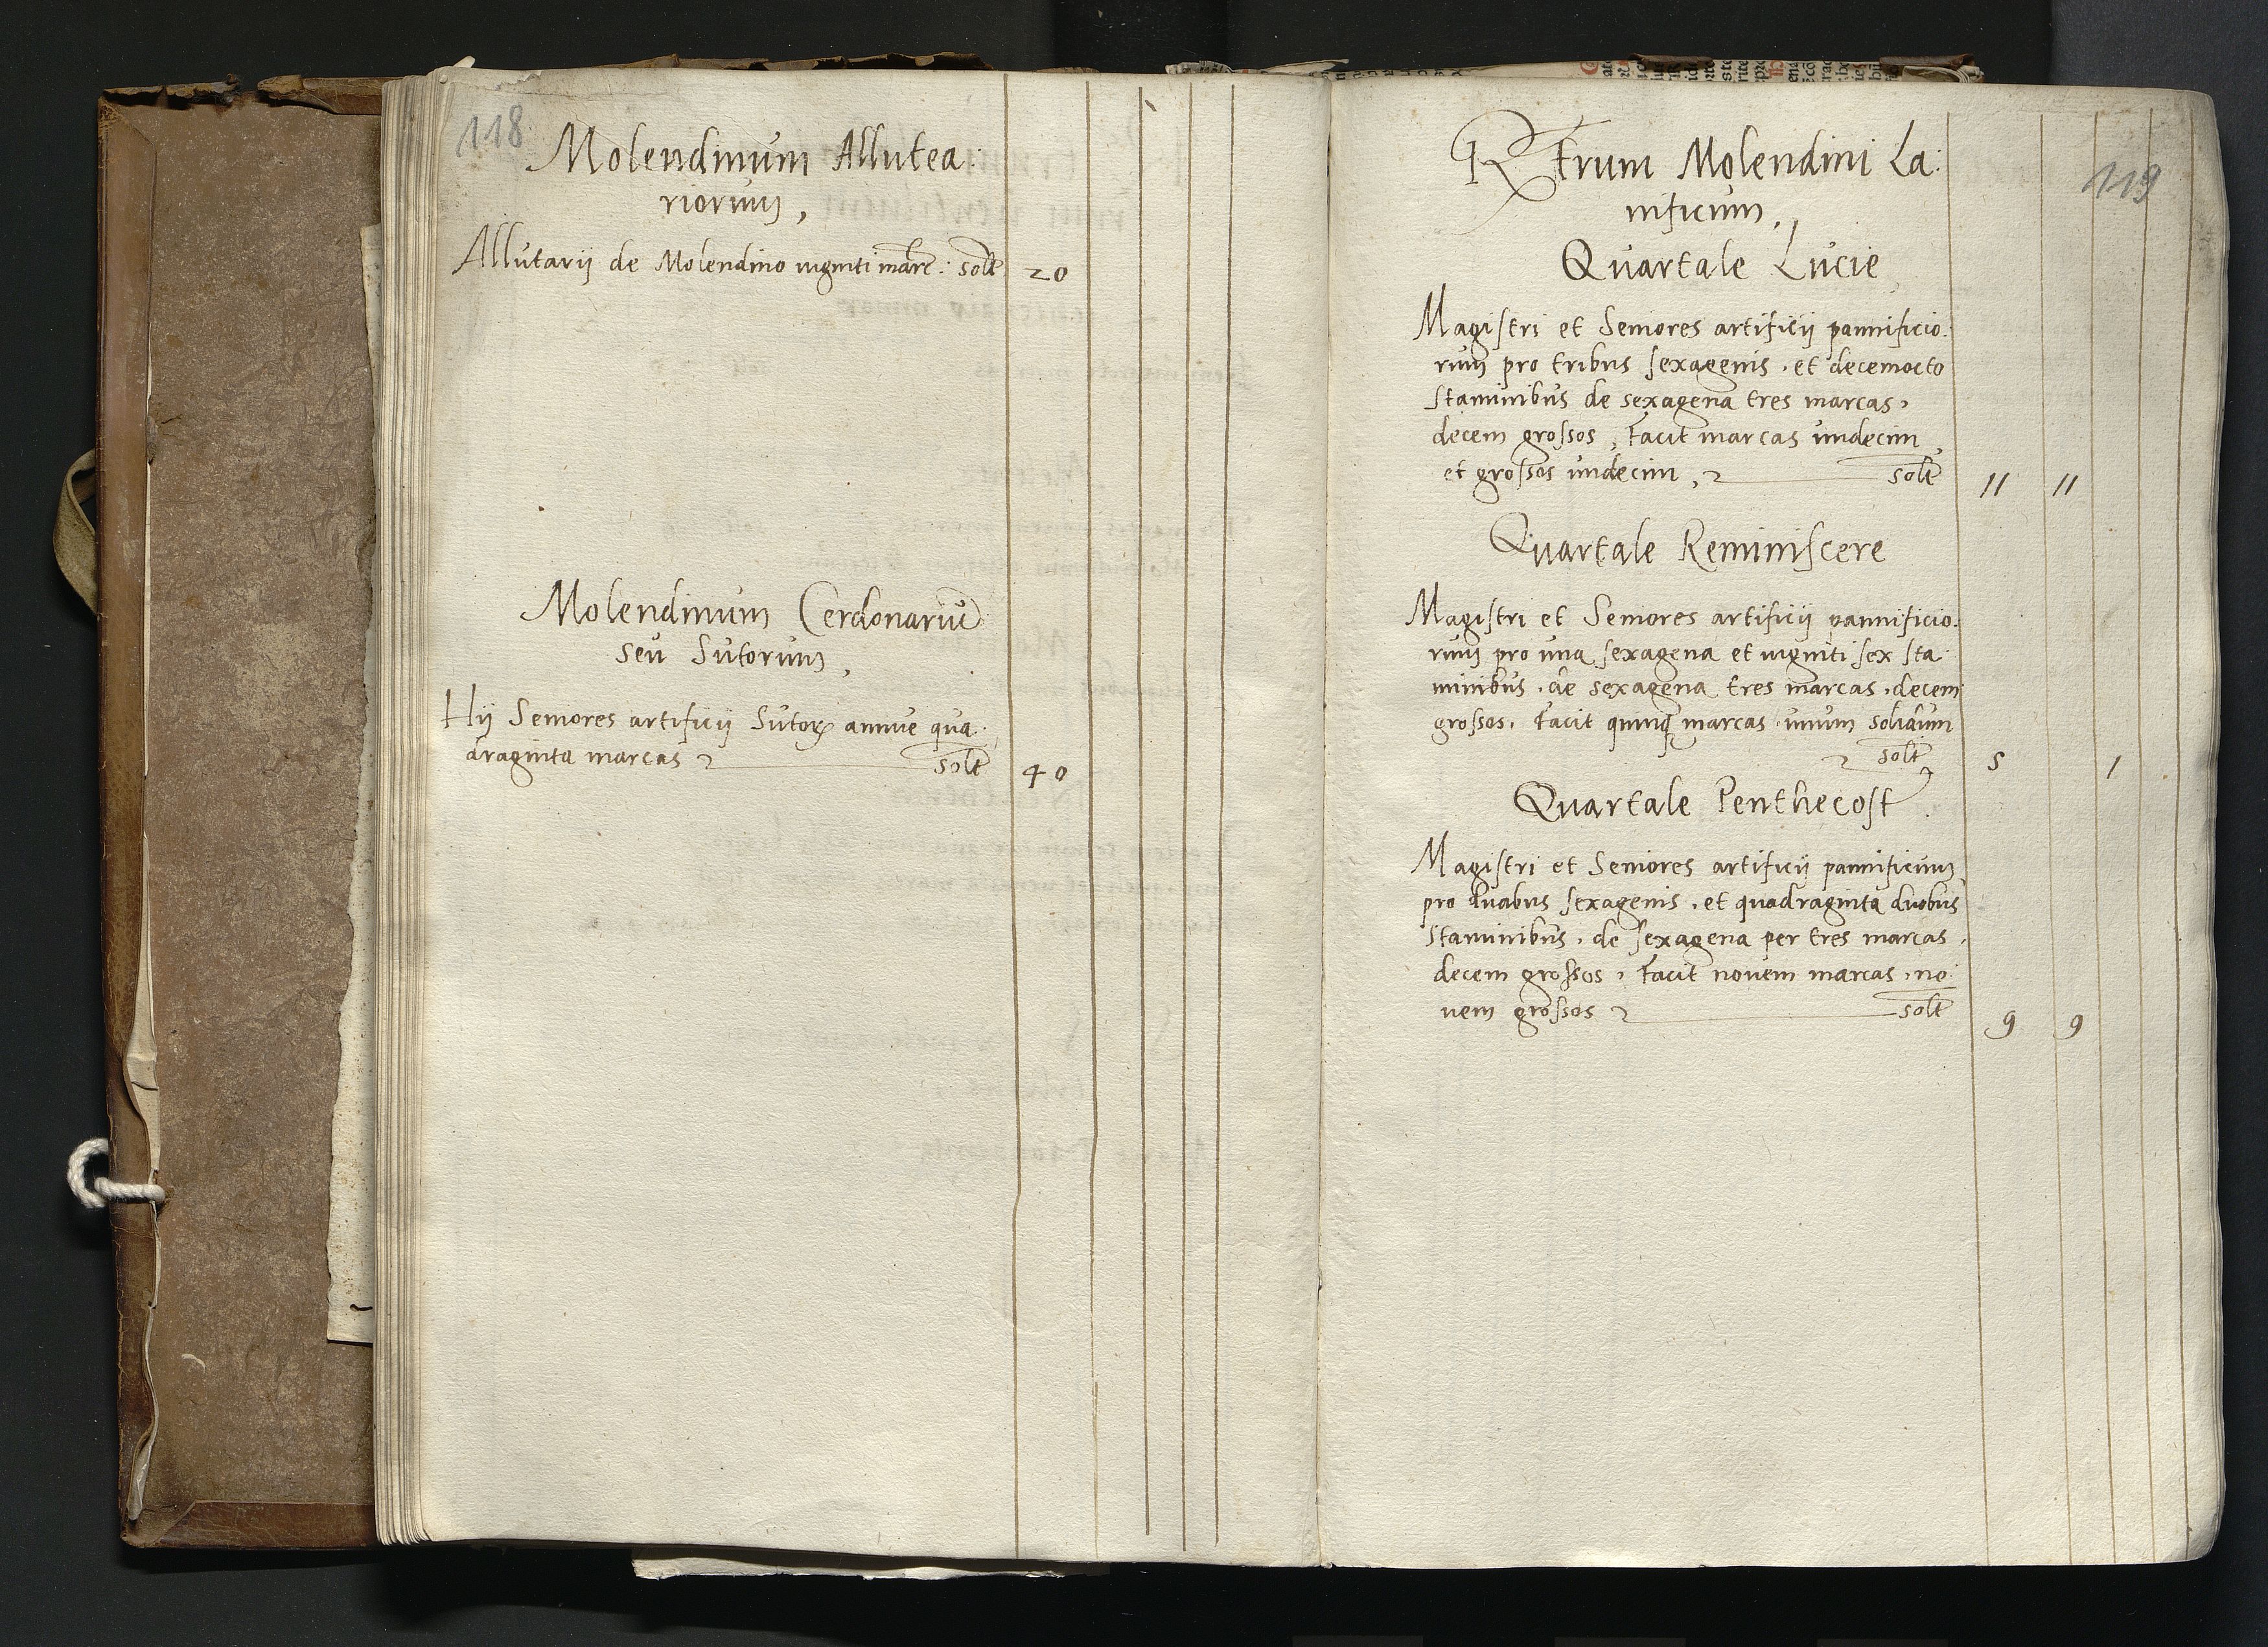 118
Molendinum Allutea:
riorum,
Allutarij de Molendino viginti marc: solt 20
Molendinum Cerdonariu
seu Sutorum,
Hij Seniores artificij Sutorꝝ annue qua:
draginta marcas solt 40
119
Rtrum Molendini La:
nificum,
Quartale Lucie
Magistri et Seniores artificij pannificio:
rum pro tribus sexagenis, et decemocto
staminibus de sexagena tres marcas,
decem grossos, facit marcas undecim,
et grossos undecim, solt 11 11
Quartale Reminiscere
Magistri et Seniores artificij pannificio:
rum pro una sexagena et viginti sex sta:
minibus, de sexagena tres marcas, decem
grossos, facit quinqꝫ marcas unum solidum
solt 5 1
Quartale Penthecost
Magistri et Seniores artificij pannificum
pro duabus sexagenis, et quadraginta duobus
staminibus, de sexagena per tres marcas,
decem grossos, facit novem marcas, no:
vem grossos solt 9 9